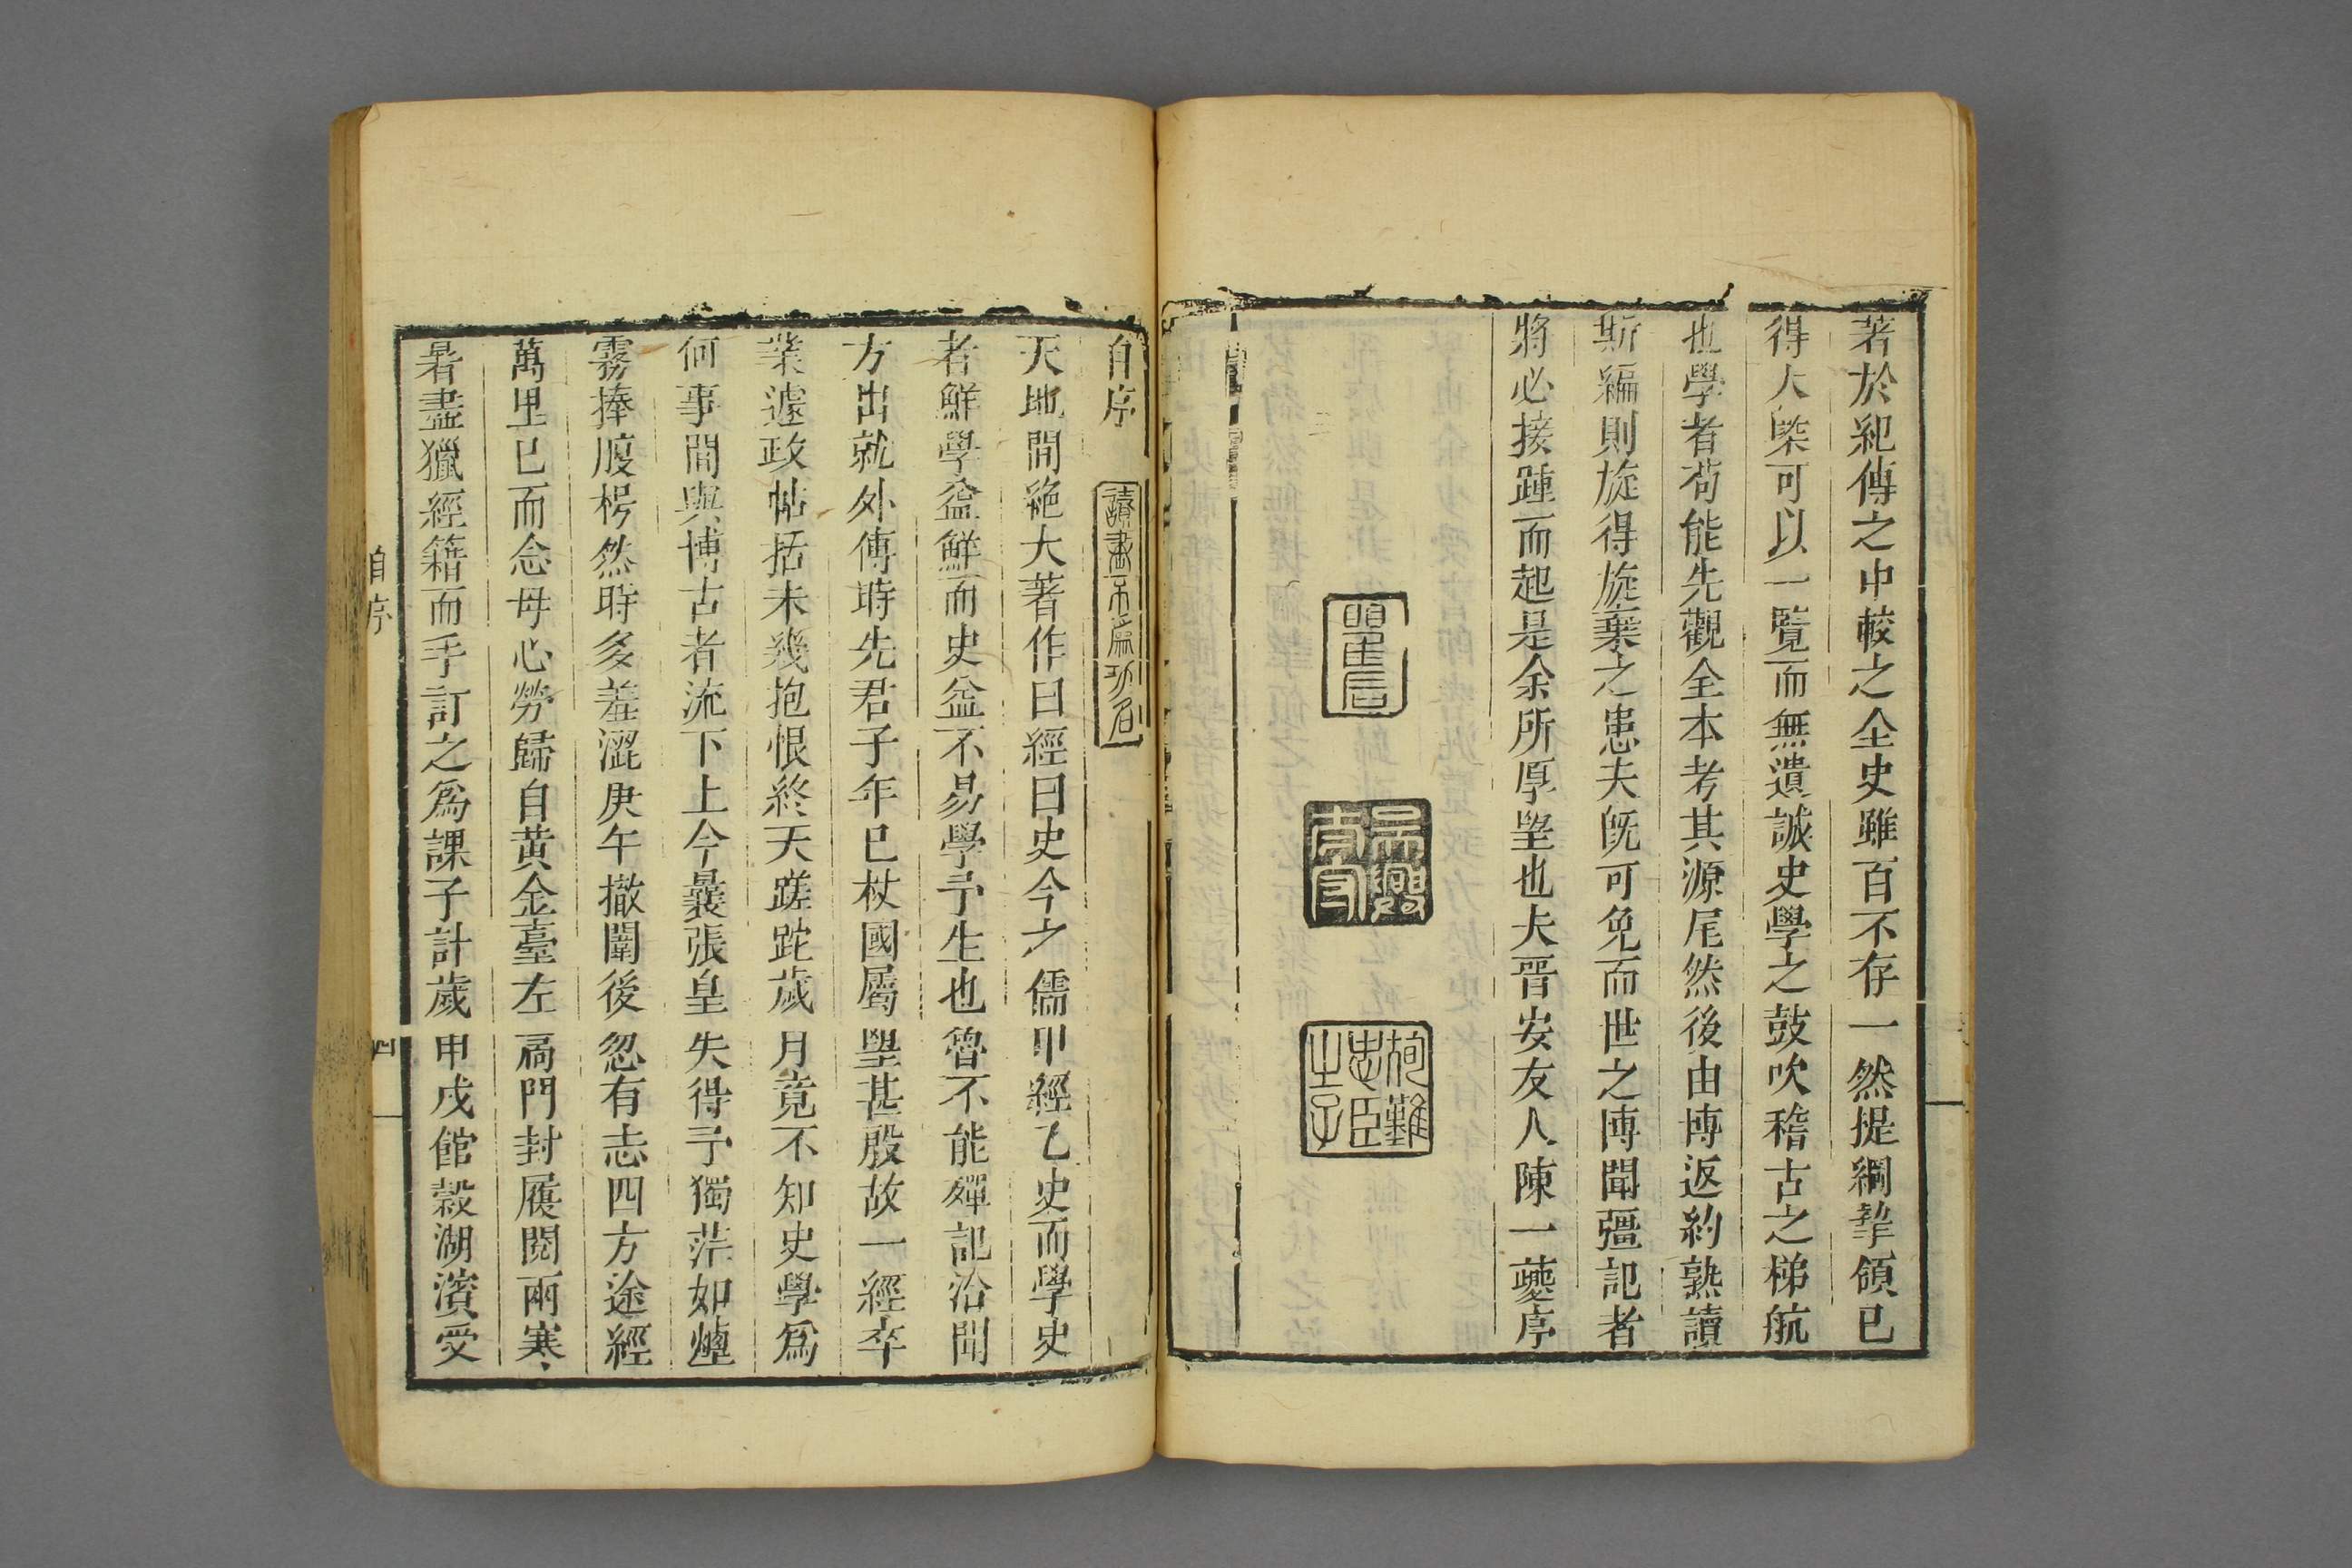 著於紀傳之中較之全史雖百不存一然提綱挈領已
得大槩可以一覽而無遺誠史學之鼓吹稽古之梯航
也學者苟能先觀全本考其源尾然後由博返約熟讀
斯編則旋得旋棄之患夫旣可免而世之博聞彊記者
將必接踵而起是余所厚望也夫晉安友人陳一夔序
殉難
忠臣
之子
自序
讀書不爲功名
天地間絶大著作曰經曰史今之儒甲經乙史而學史
者鮮學益鮮而史益不易學予生也魯不能殫記洽聞
方出就外傅時先君子年已杖國屬望甚殷故一經卒
業遽政帖括未幾抱恨終天蹉跎歲月竟不知史學爲
何事間與博古者流下上今曩張皇失得予獨茫如煙
霧捧腹枵然時多羞澀庚午撤闈後忽有志四方途經
萬里已而念母心勞歸自黃金臺左扃門封屐閱兩寒
暑盡獵經籍而手訂之爲課子計歲甲戌館穀湖濱受
自序
四